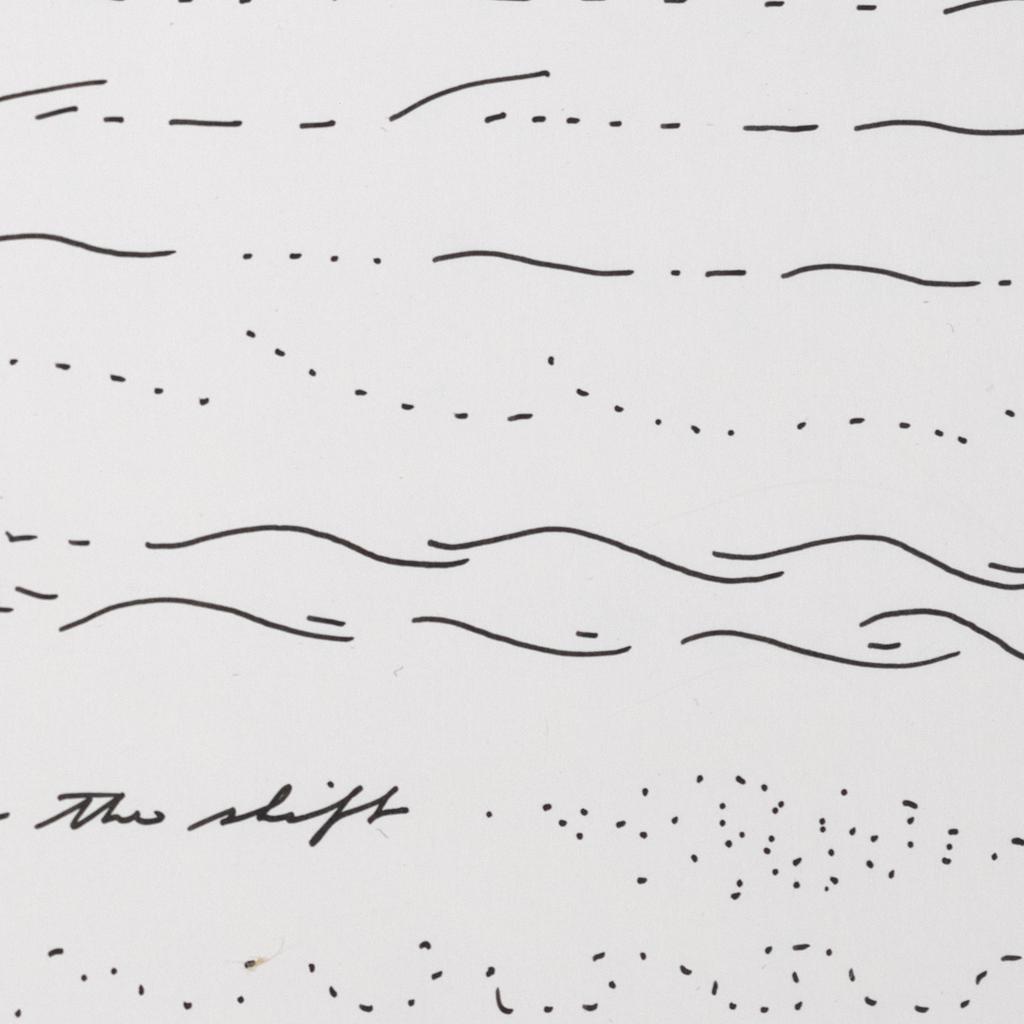 the shift